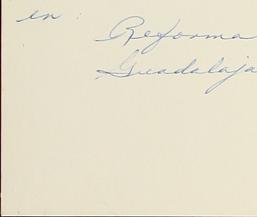 en :
Reforma
Guadalaja